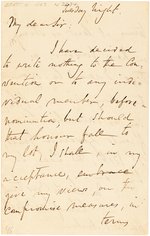 Tuesday Night.
My dear Sir,
I have decided
to write nothing to the Con
vention or to any indi-
vidual member, before
nomination, but should
that honour fall to
my lot, I shall, in my
acceptance, embrace
give my views, on the
compromise measures, in
terms